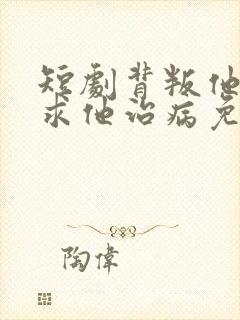 短劇背叛他
求他治病免
陶偉